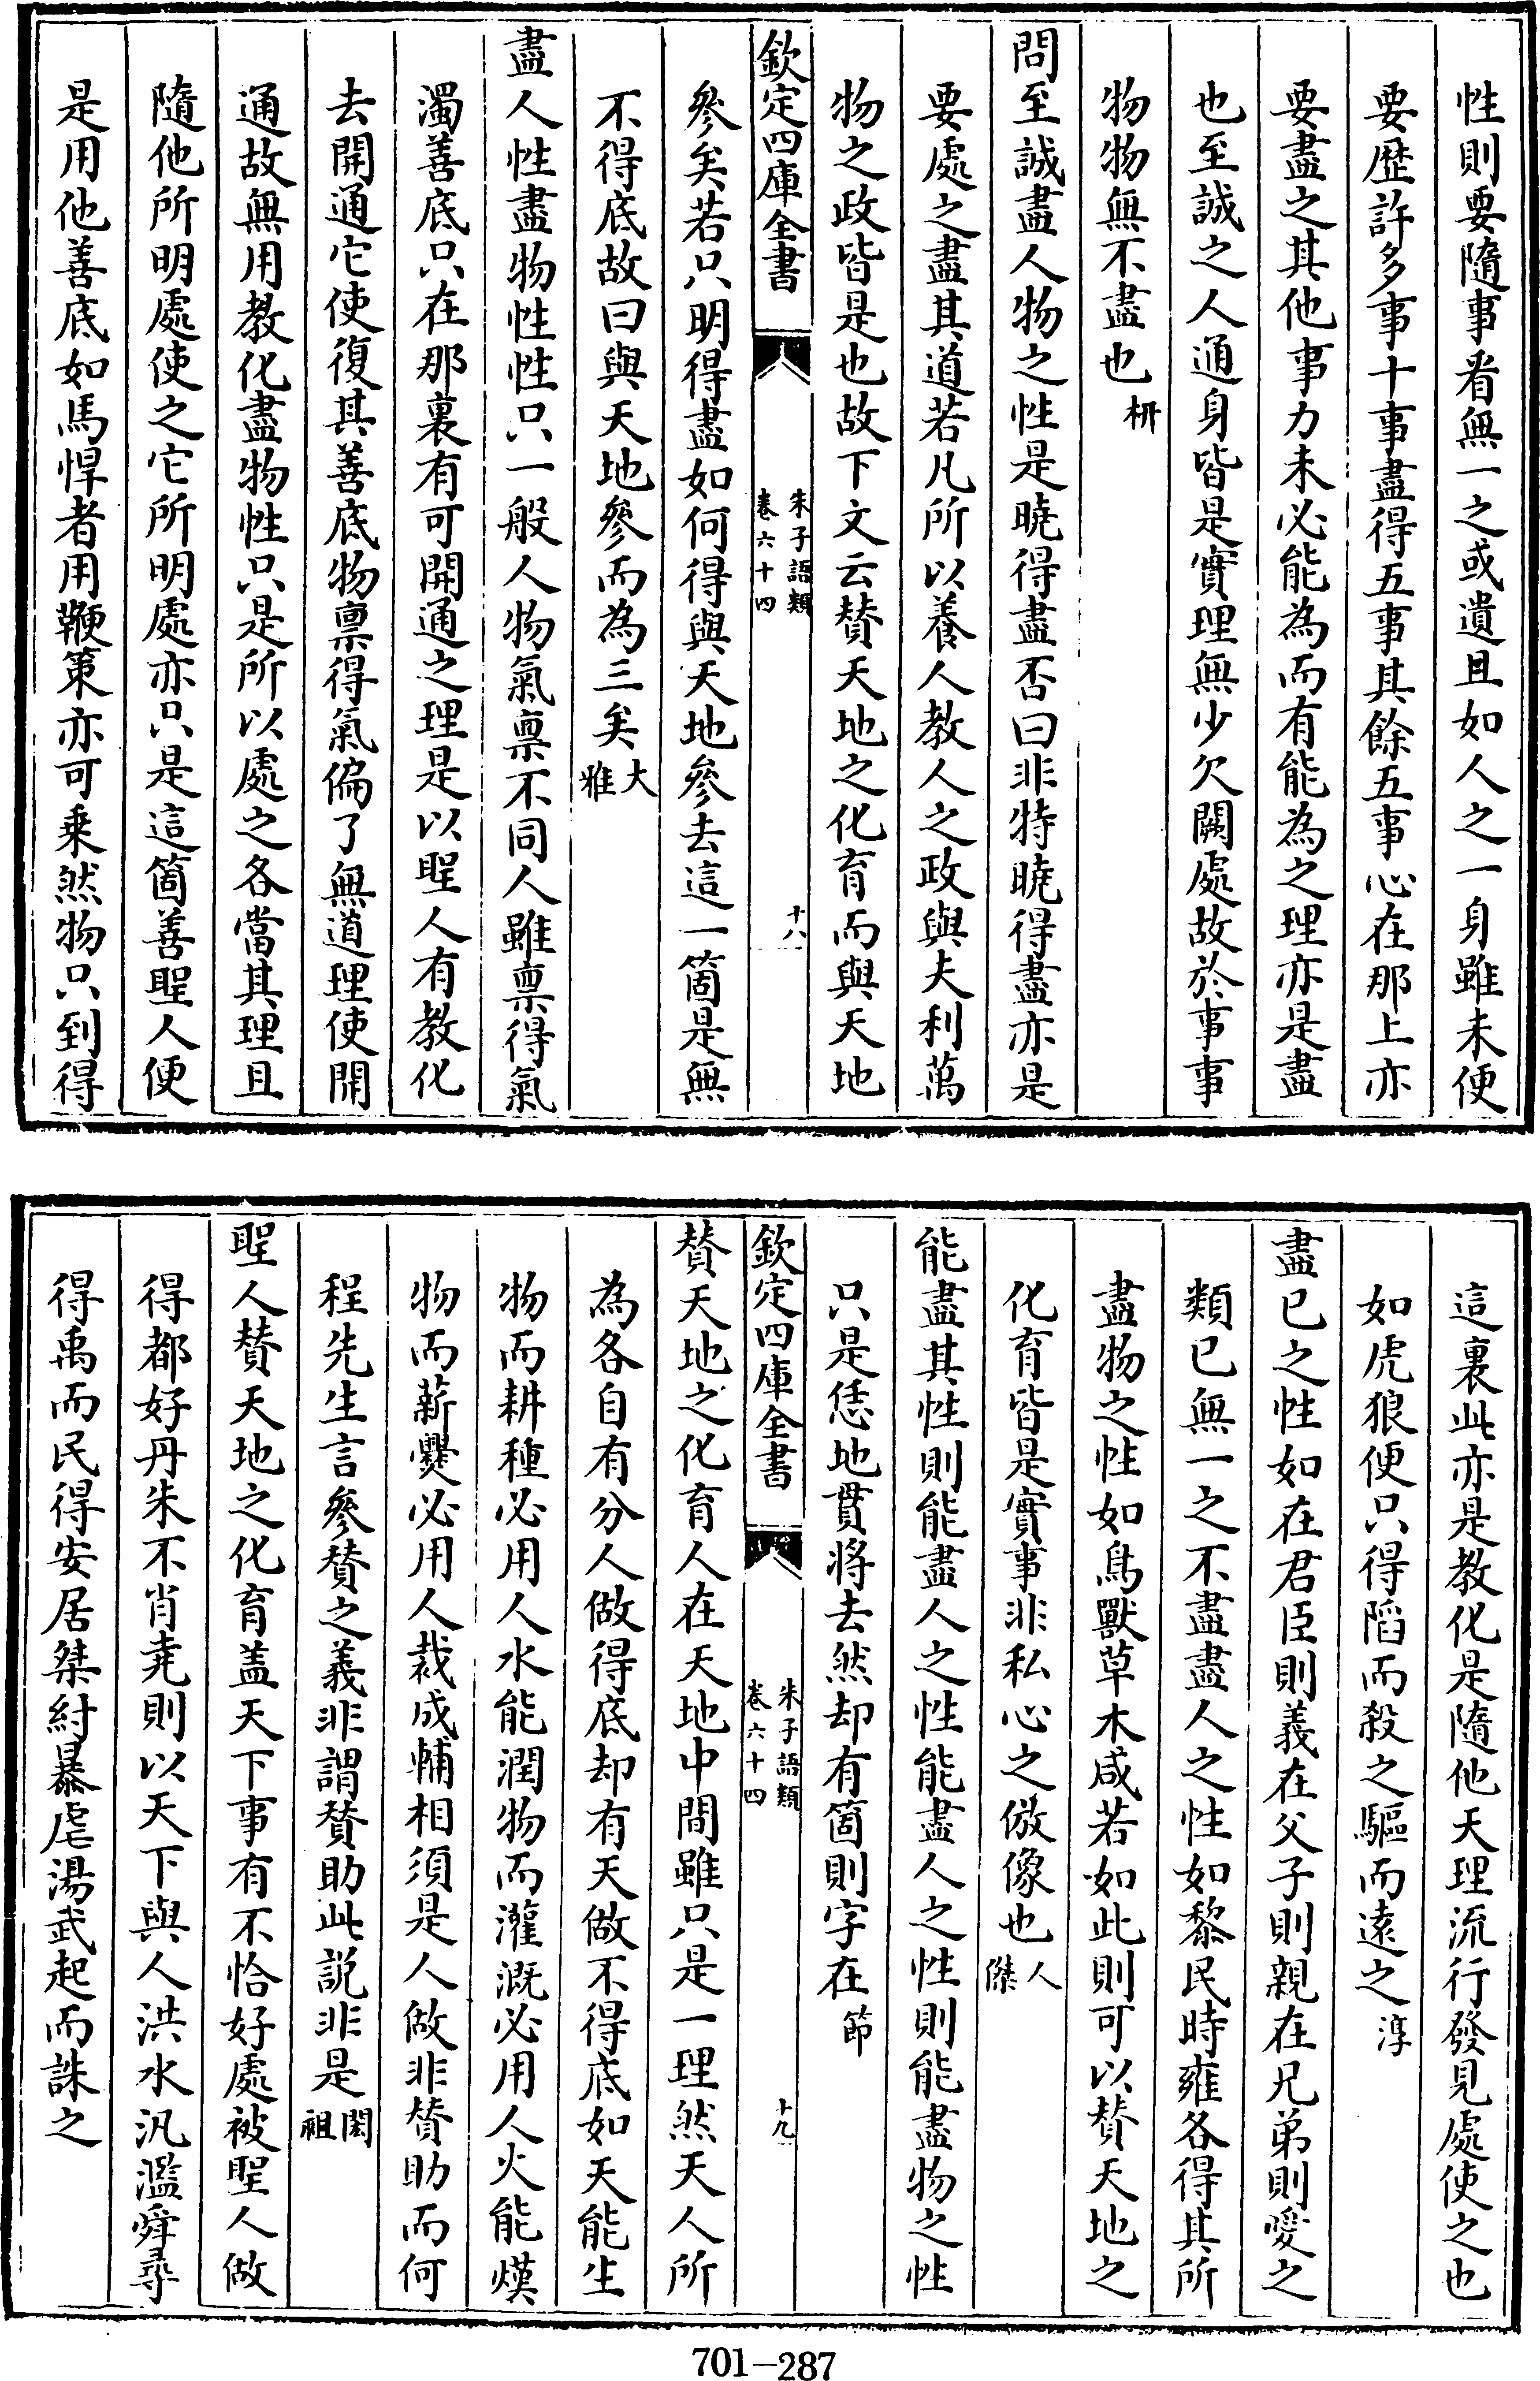 性則要隨事看無一之或遺且如人之一身雖未便
要歴許多事十事盡得五事其餘五事心在那上亦
要盡之其他事力未必能為而有能為之理亦是盡
也至誠之人通身皆是實理無少欠闕處故於事事
物物無不盡也枅
問至誠盡人物之性是曉得盡否曰非特曉得盡亦是
要處之盡其道若凡所以養人教人之政與夫利萬
物之政皆是也故下文云賛天地之化育而與天地
欽定四庫全書
朱子語類
卷六十四
十八
參矣若只明得盡如何得與天地參去這一箇是無
不得底故曰與天地參而為三矣大雅
盡人性盡物性性只一般人物氣禀不同人雖禀得氣
濁善底只在那裏有可開通之理是以聖人有教化
去開通它使復其善底物禀得氣偏了無道理使開
通故無用教化盡物性只是所以處之各當其理且
隨他所明處使之它所明處亦只是這箇善聖人便
是用他善底如馬悍者用鞭策亦可乗然物只到得
這裏此亦是教化是隨他天理流行發見處使之也
如虎狼便只得䧟而殺之驅而逺之淳
盡已之性如在君臣則義在父子則親在兄弟則愛之
類已無一之不盡盡人之性如黎民時雍各得其所
盡物之性如鳥獸草木咸若如此則可以賛天地之
化育皆是實事非私心之倣像也人傑
能盡其性則能盡人之性能盡人之性則能盡物之性
只是恁地貫將去然却有箇則字在節
欽定四庫全書
朱子語類
卷六十四
十九
賛天地之化育人在天地中間雖只是一理然天人所
為各自有分人做得底却有天做不得底如天能生
物而耕種必用人水能潤物而灌溉必用人火能熯
物而薪㸑必用人裁成輔相須是人做非賛助而何
程先生言參賛之義非謂賛助此説非是閎祖
聖人賛天地之化育盖天下事有不恰好處被聖人做
得都好丹朱不肖堯則以天下與人洪水汎濫舜尋
得禹而民得安居桀紂暴虐湯武起而誅之
701-287